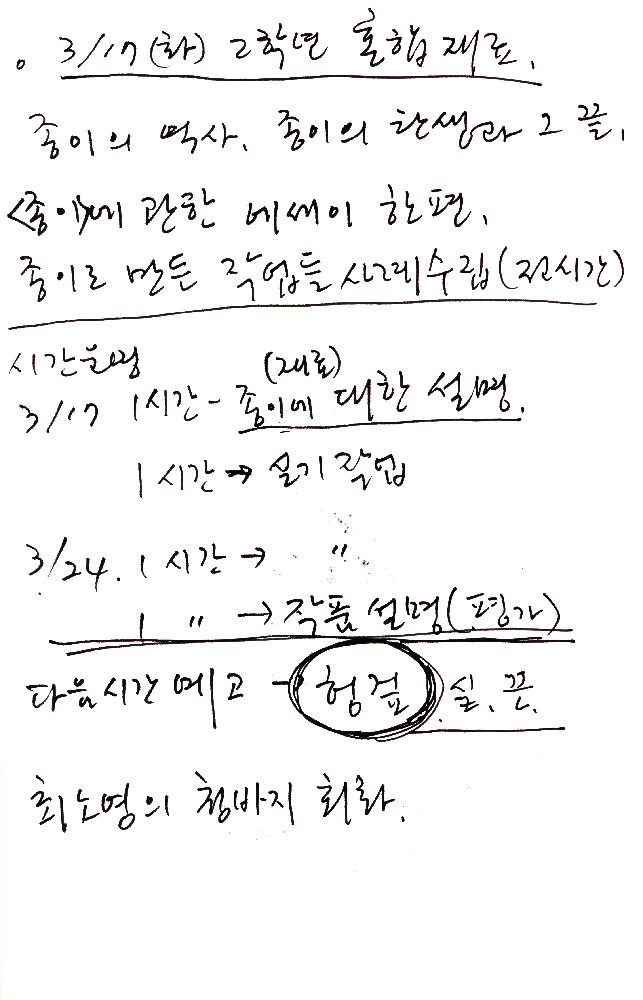 。3/17(화) 2학년 혼합재료.
종이의 역사. 종이의 탄생과 그 끝.
<종이>에 관한 에세이 한편.
종이로 만든 작업들 사례수집(전시간)
시간운영
(재료)
3/17 1시간 - 종이에 대한 설명.
1시간 → 실기작업
3/24. 1시간 → 〃
1 〃 → 작품설명(평가)
다음시간 예고 → 헝겊. 실. 끈.
최소영의 청바지 회화.